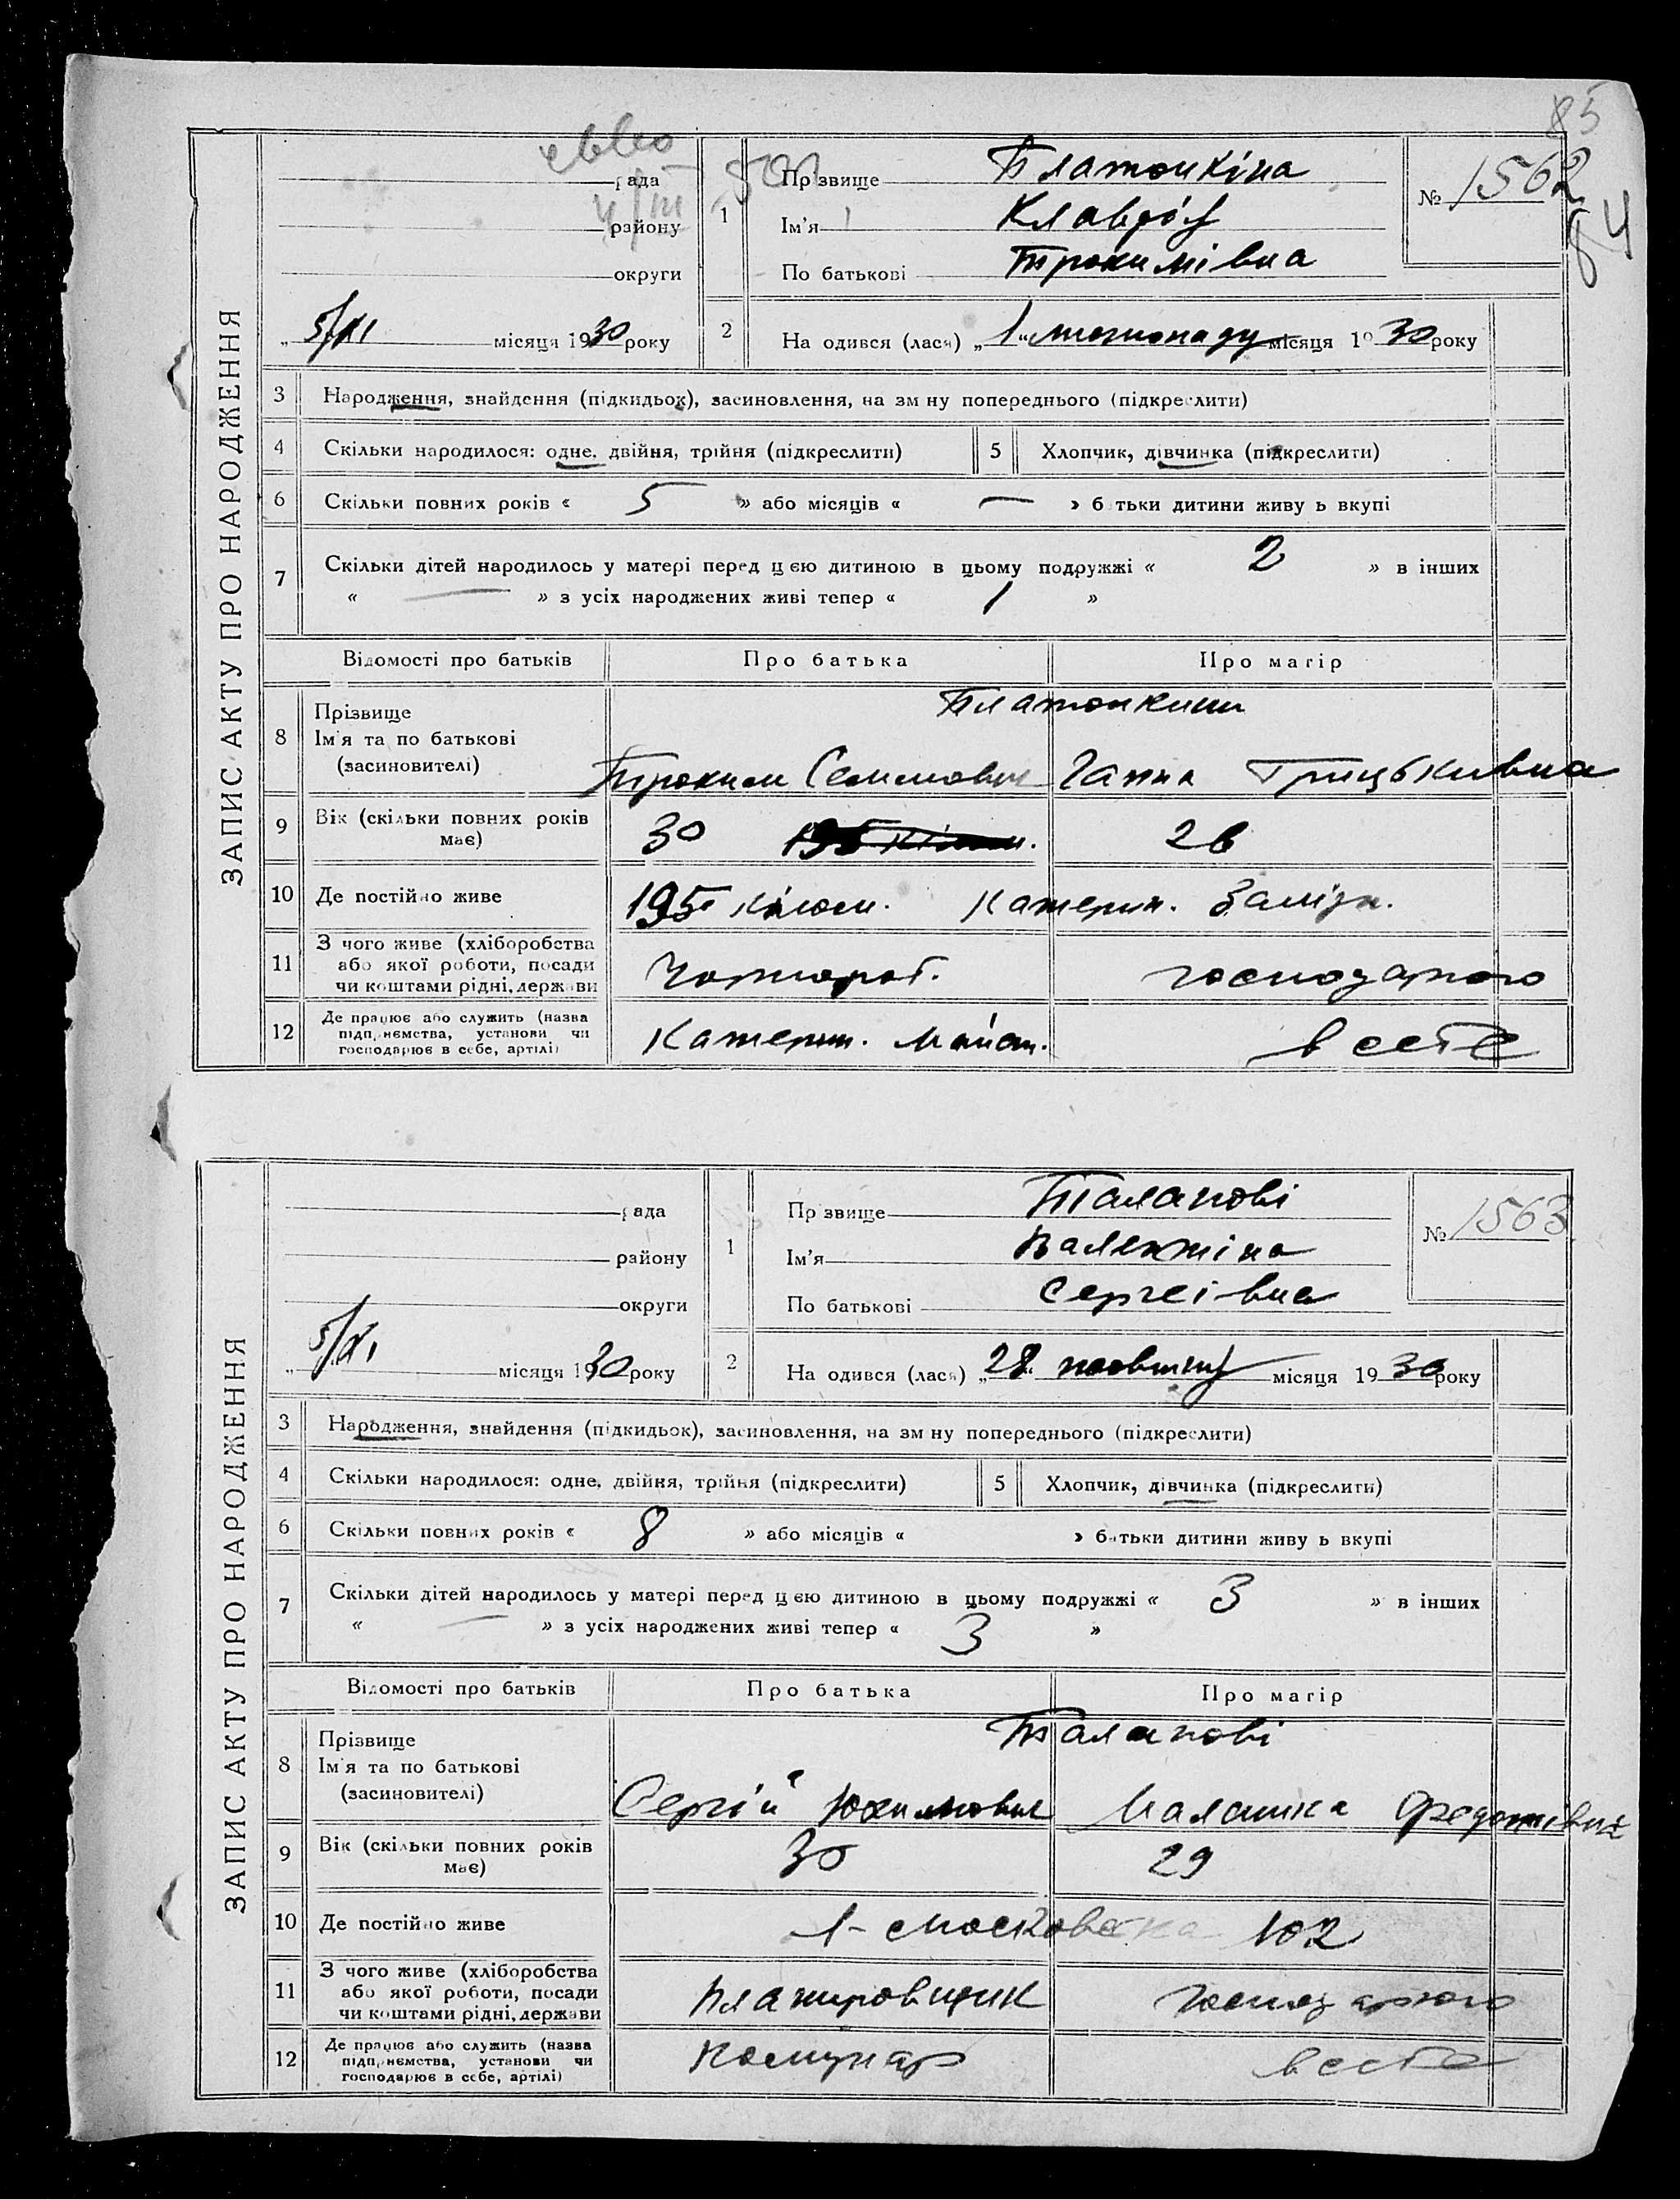 85
84
ЗАПИС АКТУ ПРО НАРОДЖЕННЯ
рада
району
округи
5/XI місяця 1930 року
1 Прізвище Платонкіна
Ім'я Клавдія
По батькові Трохимівна
№ 1562
2 На одився (лася) „1“ листопаду місяця 1930 року
3 Народження, знайдення (підкидьок), засиновлення, на зм ну попереднього (підкреслити)
4 Скільки народилося: одне, двійня, трійня (підкреслити) 5 Хлопчик, дівчинка (підкреслити)
6 Скільки повних років « 5 » або місяців « — » б тьки дитини живу ь вкупі
7 Скільки дітей народилось у матері перед цією дитиною в цьому подружжі « 2 » в інших
« — » з усіх народжених живі тепер « 1 »
Відомості про батьків Про батька Про матір
8 Прізвище
Ім'я та по батькові
(засиновителі)
Платонкини
Трохим Семенович Ганна Грицьківна
9 Вік (скільки повних років
має)
30 26
10 Де постійно живе 195 кілом. Катерин. Заліз.
11 З чого живе (хліборобства
або якої роботи, посади
чи коштами рідні, держави
Чорнороб. господаркою
12 Де працює або служить (назва
підприємства, установи чи
господарює в себе, артілі)
Катерин. Майст. в себе
ЗАПИС АКТУ ПРО НАРОДЖЕННЯ
рада
району
округи
5/XI місяця 1930 року
1 Прізвище Таланові
Ім'я Валентіна
По батькові Сергеівна
№ 1563
2 На одився (лася) „28“ жовтня місяця 1930 року
3 Народження, знайдення (підкидьок), засиновлення, на зм ну попереднього (підкреслити)
4 Скільки народилося: одне, двійня, трійня (підкреслити) 5 Хлопчик, дівчинка (підкреслити)
6 Скільки повних років « 8 » або місяців « » батьки дитини живу ь вкупі
7 Скільки дітей народилось у матері перед цією дитиною в цьому подружжі « 3 » в інших
« — » з усіх народжених живі тепер « 3 »
Відомості про батьків Про батька Про матір
8 Прізвище
Ім'я та по батькові
(засиновителі)
Таланові
Сергій Юхимович Малашка Федотівна
9 Вік (скільки повних років
має)
30 29
10 Де постійно живе 1-Московська 102
11 З чого живе (хліборобства
або якої роботи, посади
чи коштами рідні, держави
Планировщик господаркою
12 Де працює або служить (назва
підприємства, установи чи
господарює в себе, артілі)
Комунар в себе